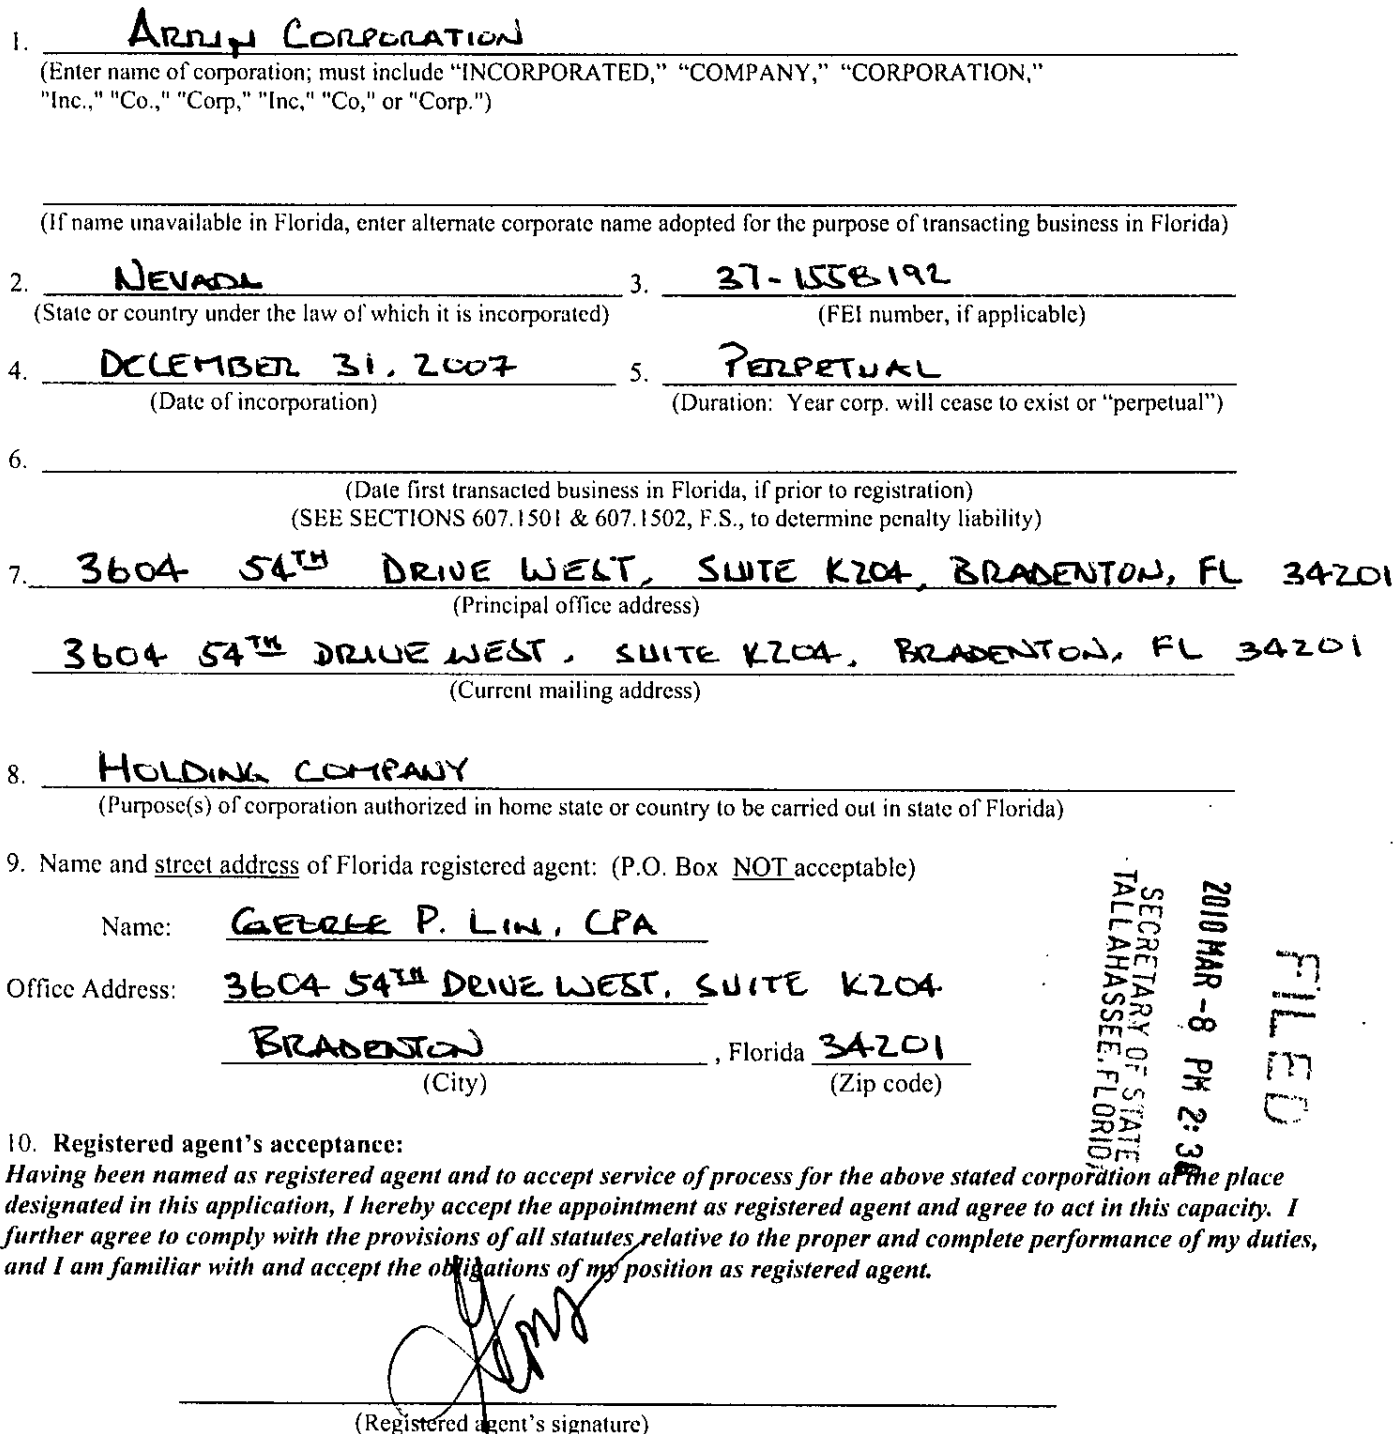 1. ARRIN CORPORATION
(Enter name of corporation; must include “INCORPORATED,” “COMPANY,” “CORPORATION,”
"Inc.," "Co.," "Corp," "Inc," "Co," or "Corp.")
(If name unavailable in Florida, enter alternate corporate name adopted for the purpose of transacting business in Florida)
2. NEVADA 3. 37-1558192
(State or country under the law of which it is incorporated) (FEI number, if applicable)
4. DECEMBER 31, 2007 5. PERPETUAL
(Date of incorporation) (Duration: Year corp. will cease to exist or “perpetual”)
6.
(Date first transacted business in Florida, if prior to registration)
(SEE SECTIONS 607.1501 & 607.1502, F.S., to determine penalty liability)
7. 3604 54TH DRIVE WEST, SUITE K204, BRADENTON, FL 34201
(Principal office address)
3604 54TH DRIVE WEST, SUITE K204, BRADENTON, FL 34201
(Current mailing address)
8. HOLDING COMPANY
(Purpose(s) of corporation authorized in home state or country to be carried out in state of Florida)
9. Name and street address of Florida registered agent: (P.O. Box NOT acceptable)
Name: GEORGE P. LIN, CPA
Office Address: 3604 54TH DRIVE WEST, SUITE K204
BRADENTON, Florida 34201
(City) (Zip code)
FILED
2010 MAR -8 PM 2:38
SECRETARY OF STATE
TALLAHASSEE, FLORIDA
10. Registered agent’s acceptance:
Having been named as registered agent and to accept service of process for the above stated corporation at the place
designated in this application, I hereby accept the appointment as registered agent and agree to act in this capacity. I
further agree to comply with the provisions of all statutes relative to the proper and complete performance of my duties,
and I am familiar with and accept the obligations of my position as registered agent.
(Registered agent’s signature)